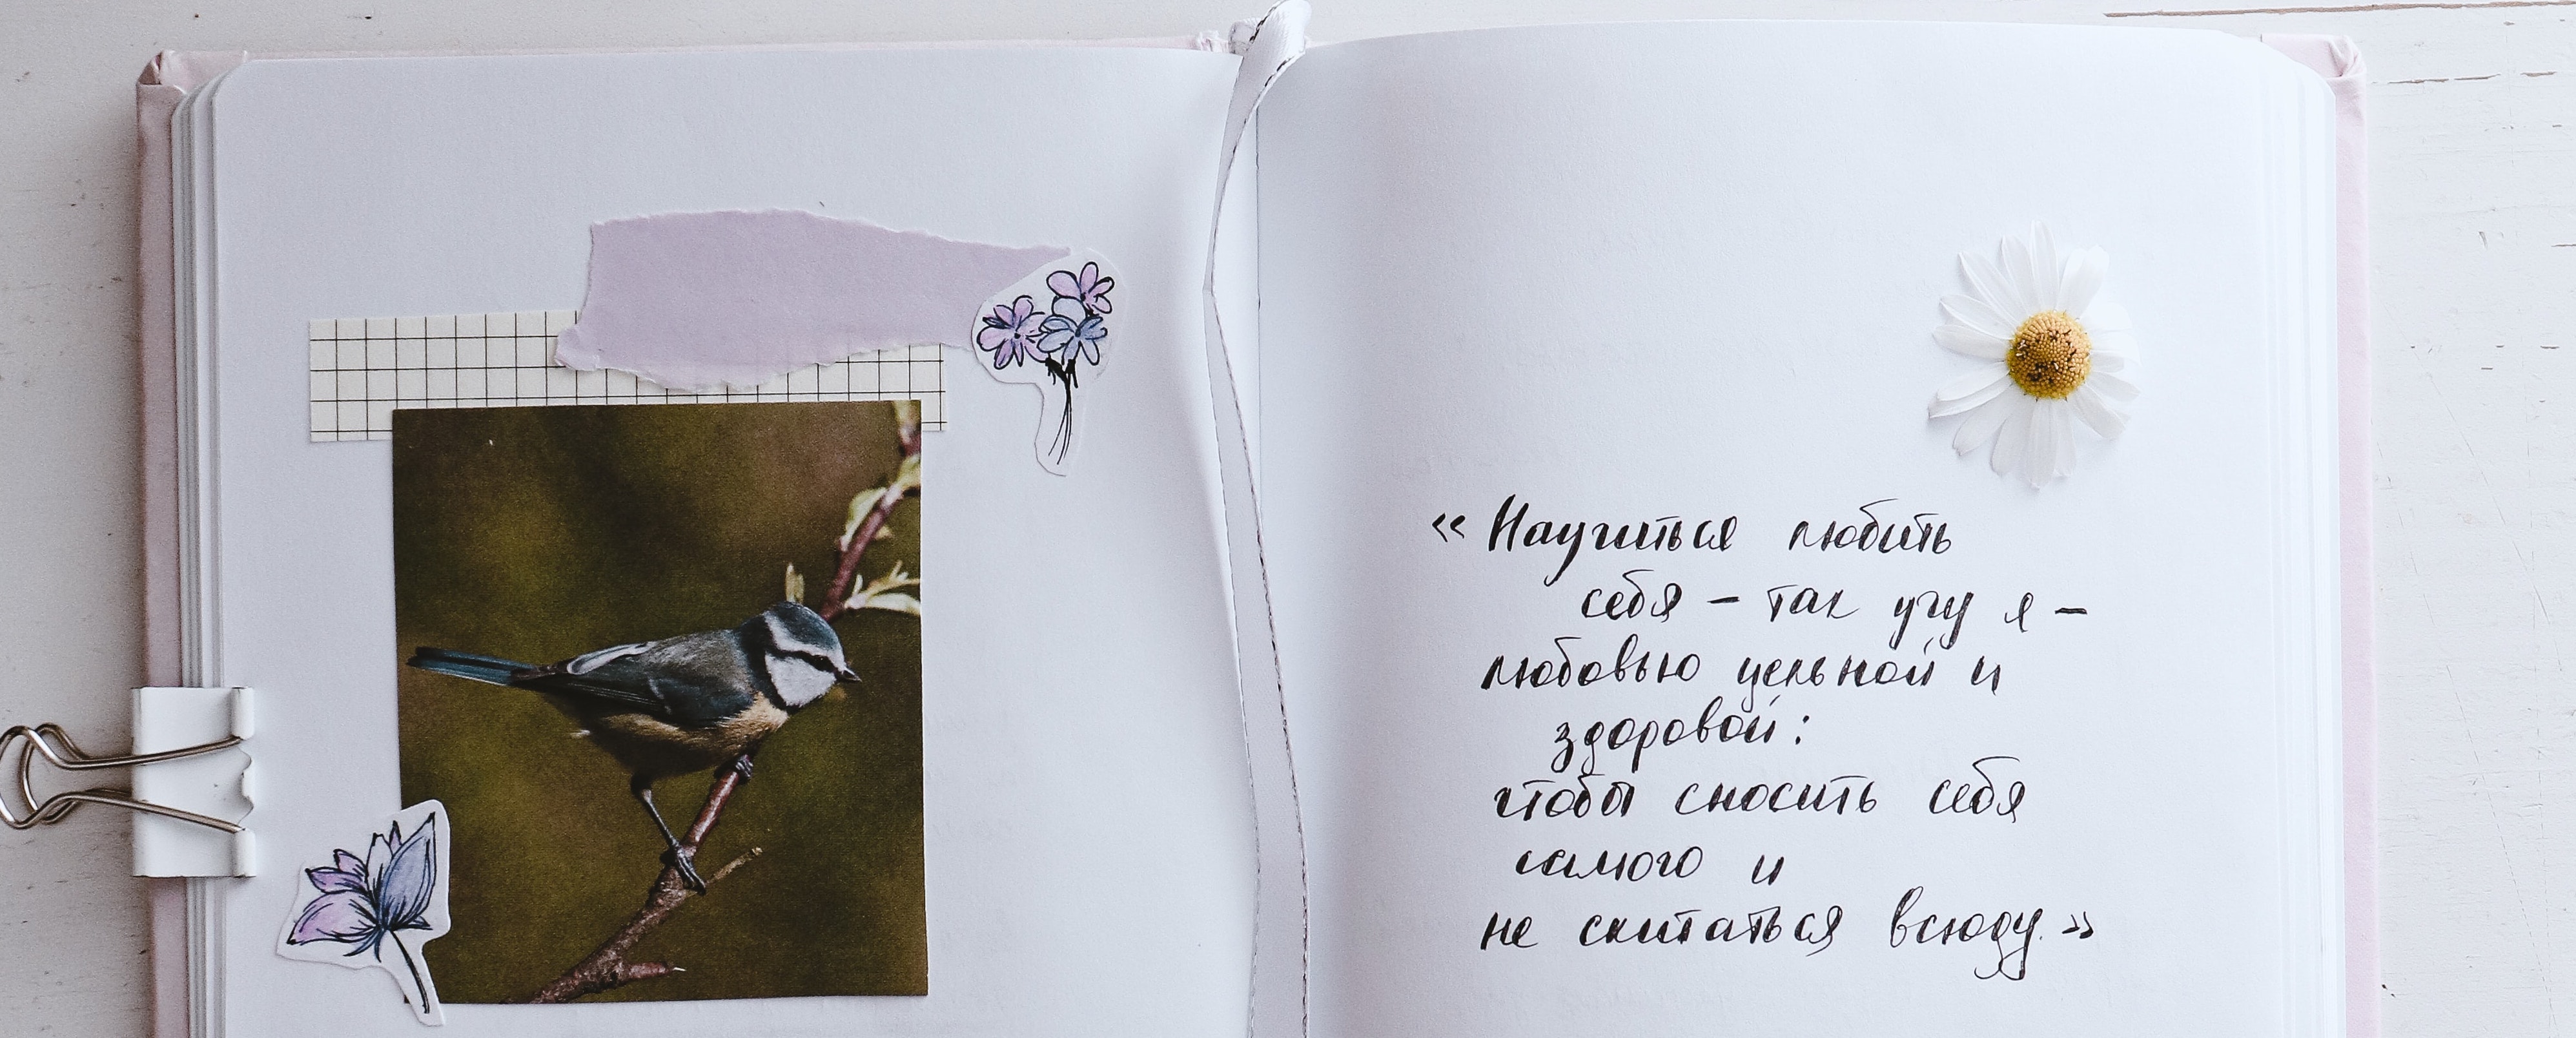 « Научиться любить
себя – так учу я –
любовью цельной и
здоровой:
чтобы сносить себя
самого и
не скитаться всюду. »